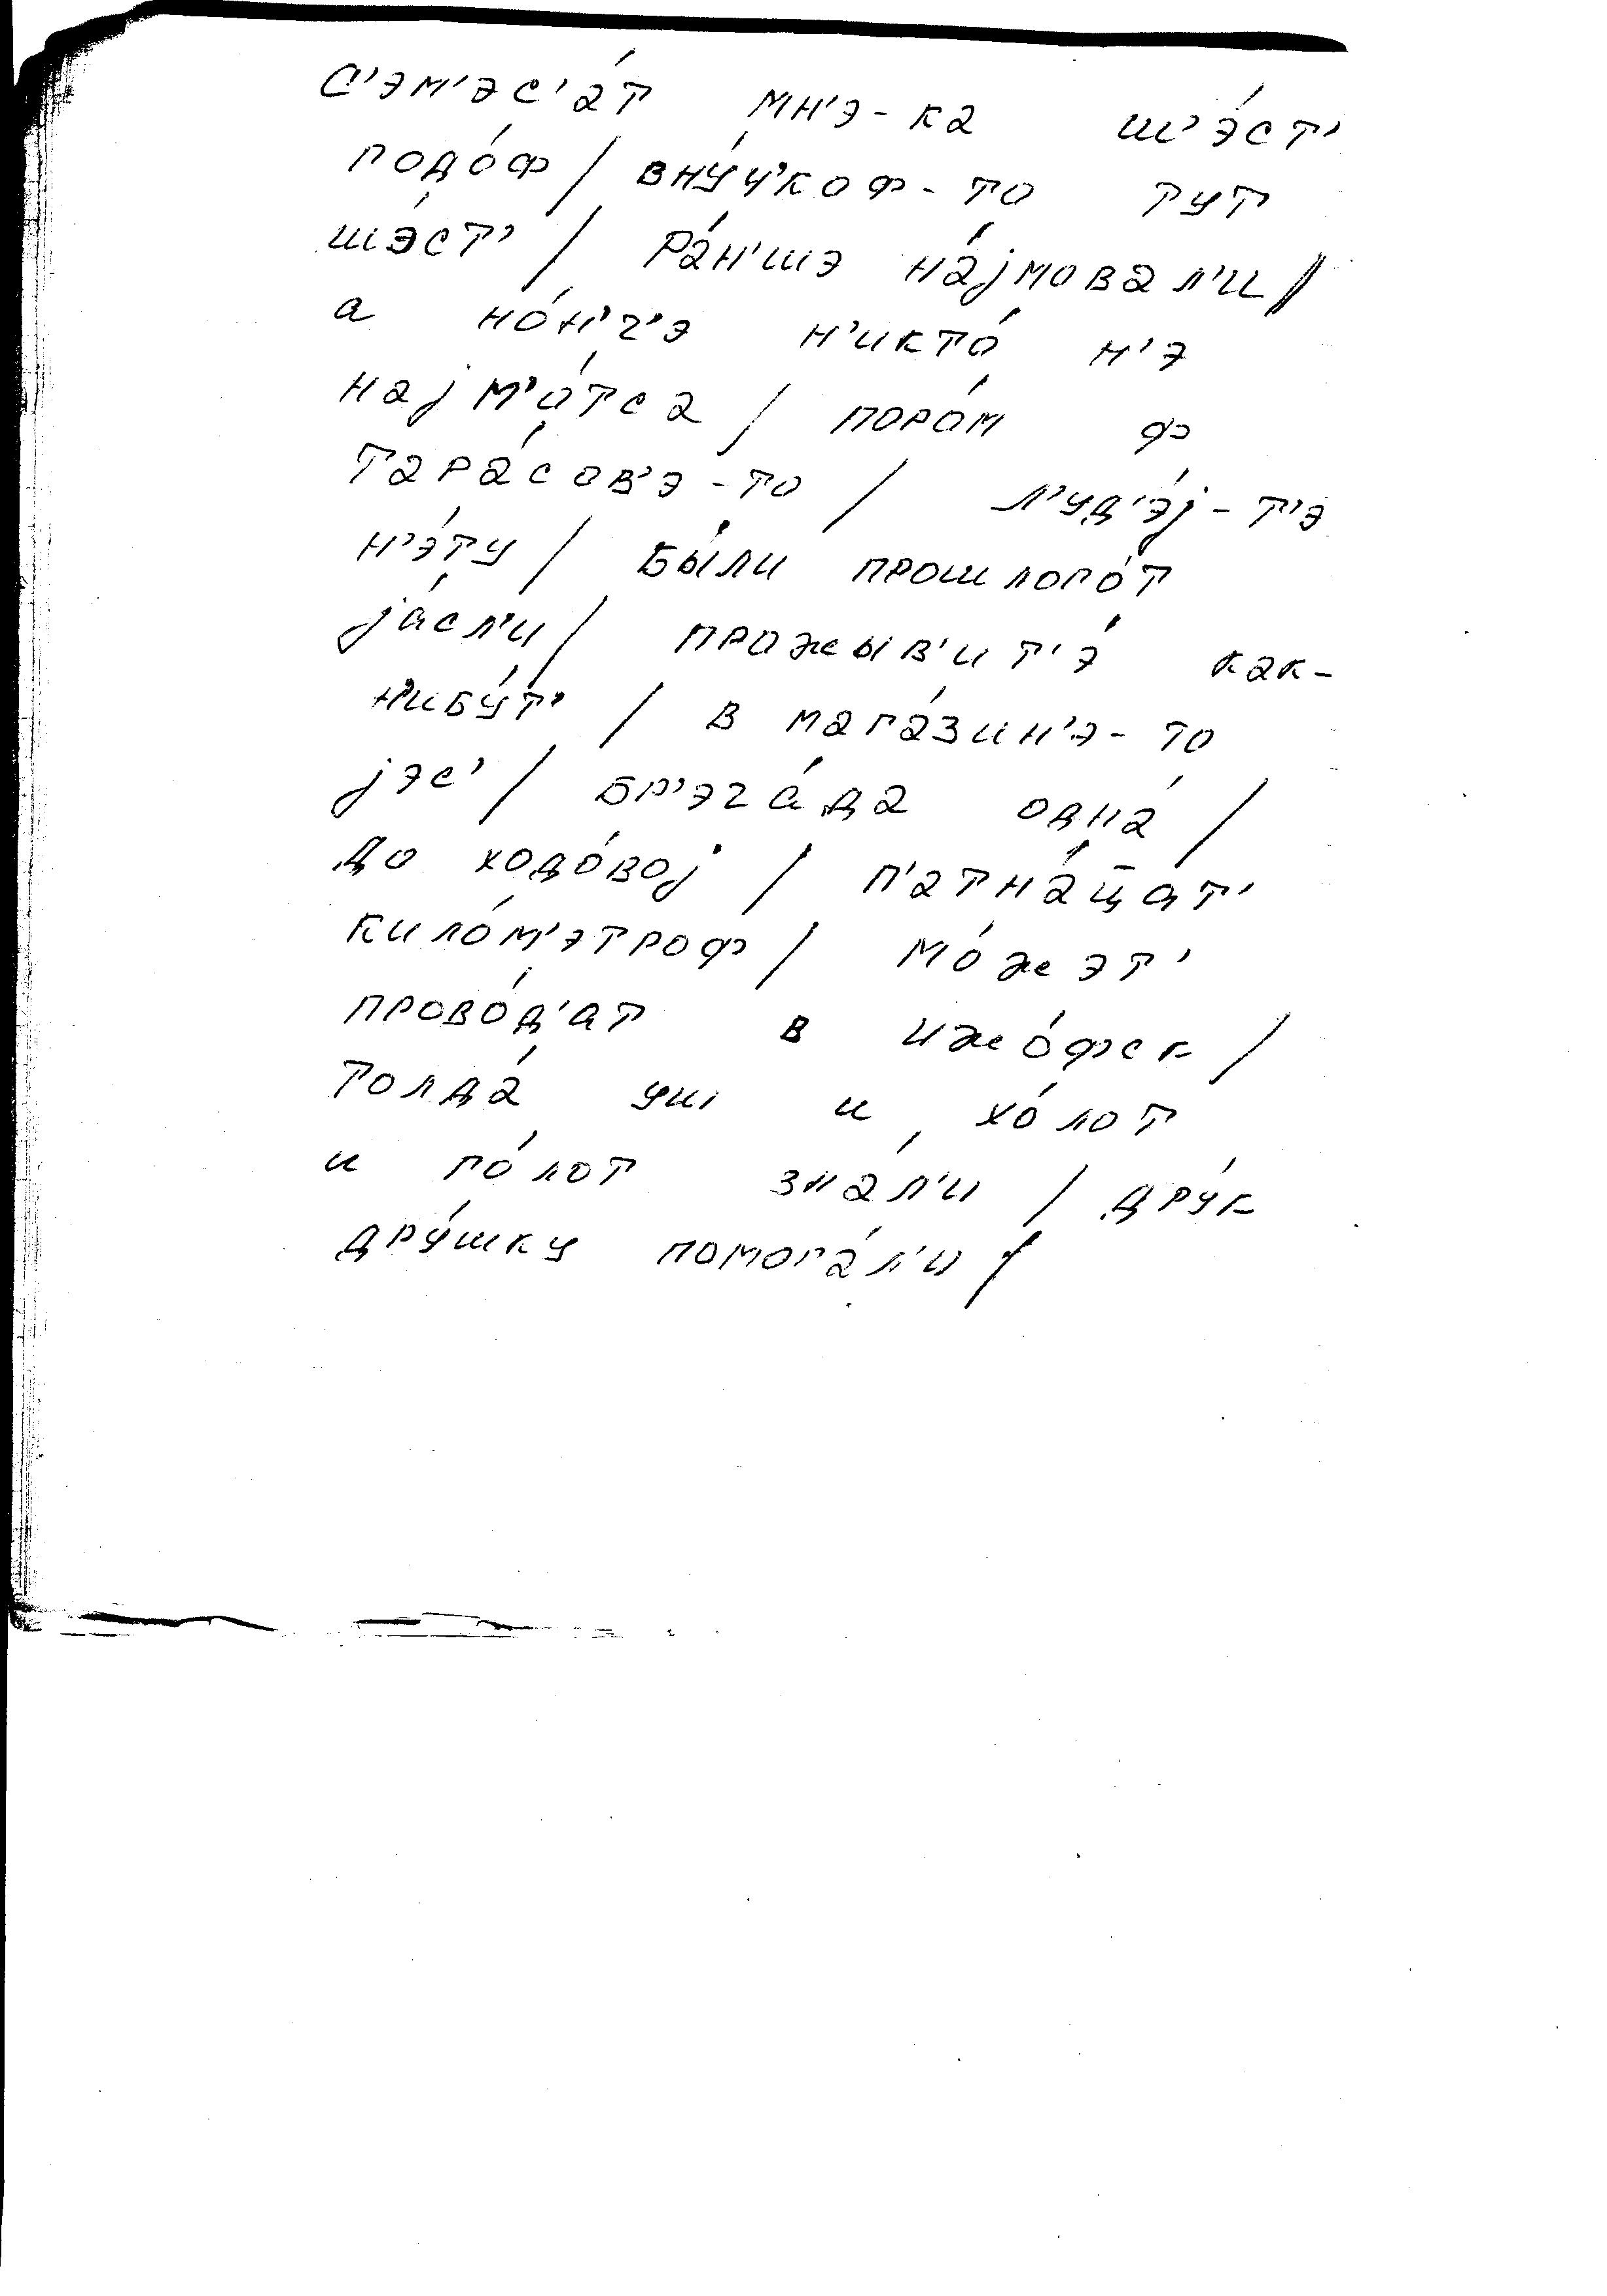 с'эм'эс'а́т мн'э-ка ш'э́ст'
годо́ф / вну́ч'коф-то тут
шэ́ст' / ра́н'шэ на́јмовал'и //
а но́н'г'э н'икто́ н'э
најм'а́тса / поро́м ф
тара́сов'э-то / л'уд'э́ј-т'э
н'э́ту / бы́ли прошлого́т
ја́сл'и / прожыв'ит'э́ как-
н'ибу́т' / в мага́зин'э-то
јэс' / бр'эга́да одна́ /
до ходо́вој / п'атна́ц̄ат'
кило́м'этроф / мо́жэт'
прово́д'ат в ижо́фск /
толда́ уш и хо́лот
и го́лот зна́л'и / дру́к
дру́шку помога́л'и /